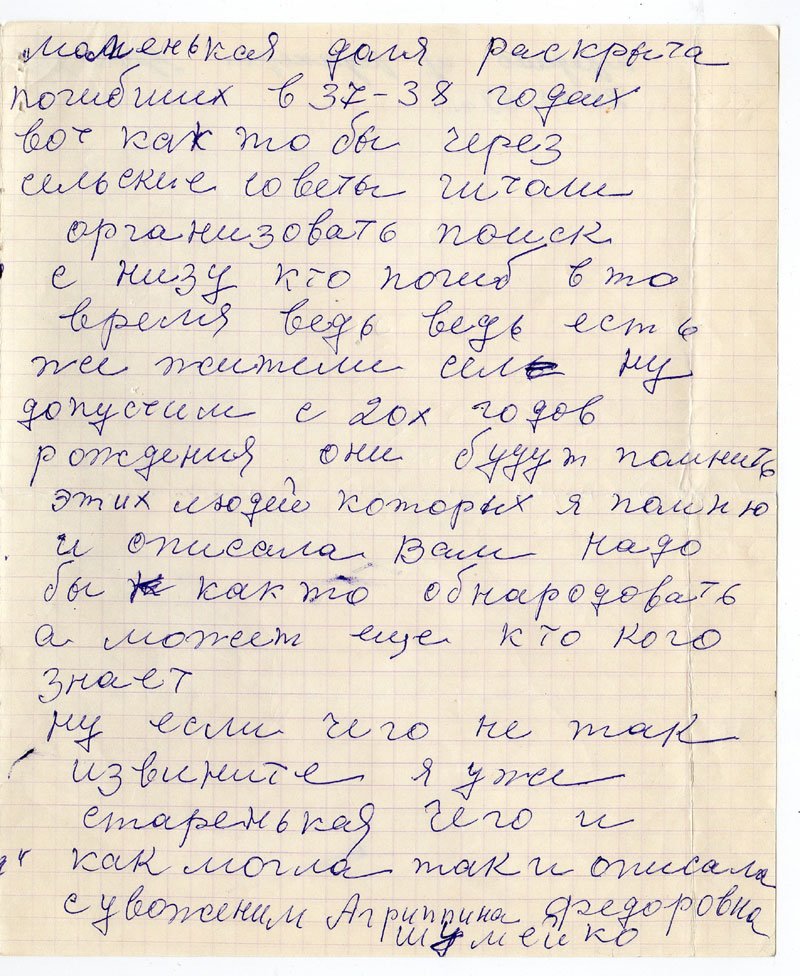 маленькая доля раскрыта
погибших в 37-38 годах
вот как то бы через
сельские советы читали
организовать поиск
с низу кто погиб в то
время ведь ведь есть
же жители сел ну
допустим с 20х годов
рождения они будут помнить
этих людей которых я помню
и описала Вам надо
бы как то обнародовать
а может еще кто кого
знает
ну если чего не так
извините я уже
старенькая чего и
как могла так и описала
с уваженим Агриппина Федоровна
Шумейко